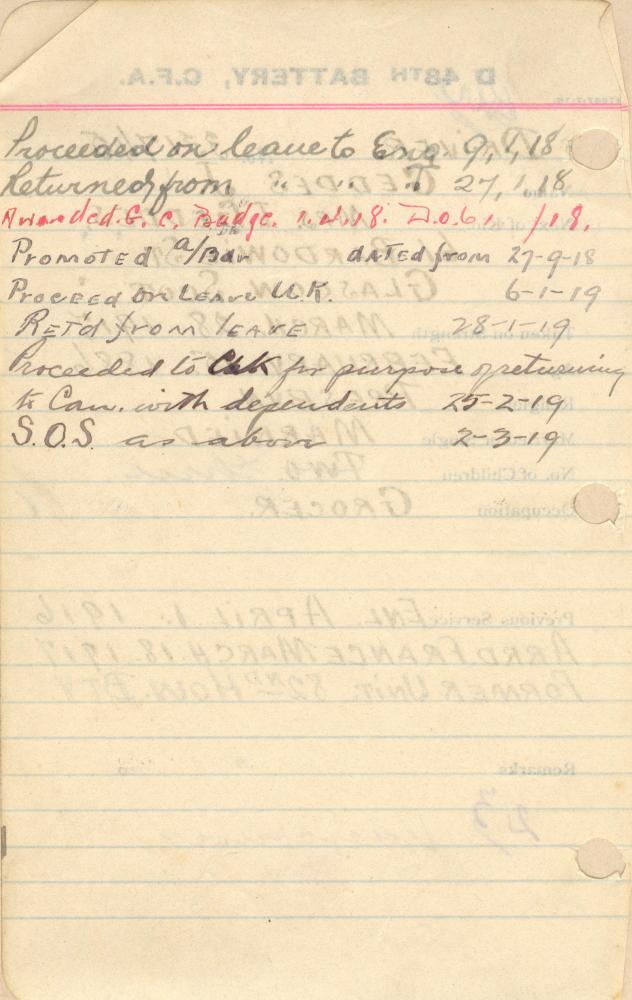 Proceeded on leave to Eng 9,1,18
Returned from " " " " 27,1,18
Awarded. G. C. Badge. 1.4.18. D.O.61 /18.
Promoted a/Bdr dated from 27-9-18
Proceed on Leave U.K. 6-1-19
Ret'd from leave 28-1-19
Proceeded to for purpose of returning
to Can. with dependents 25-2-19
S.O.S. as above 2-3-19